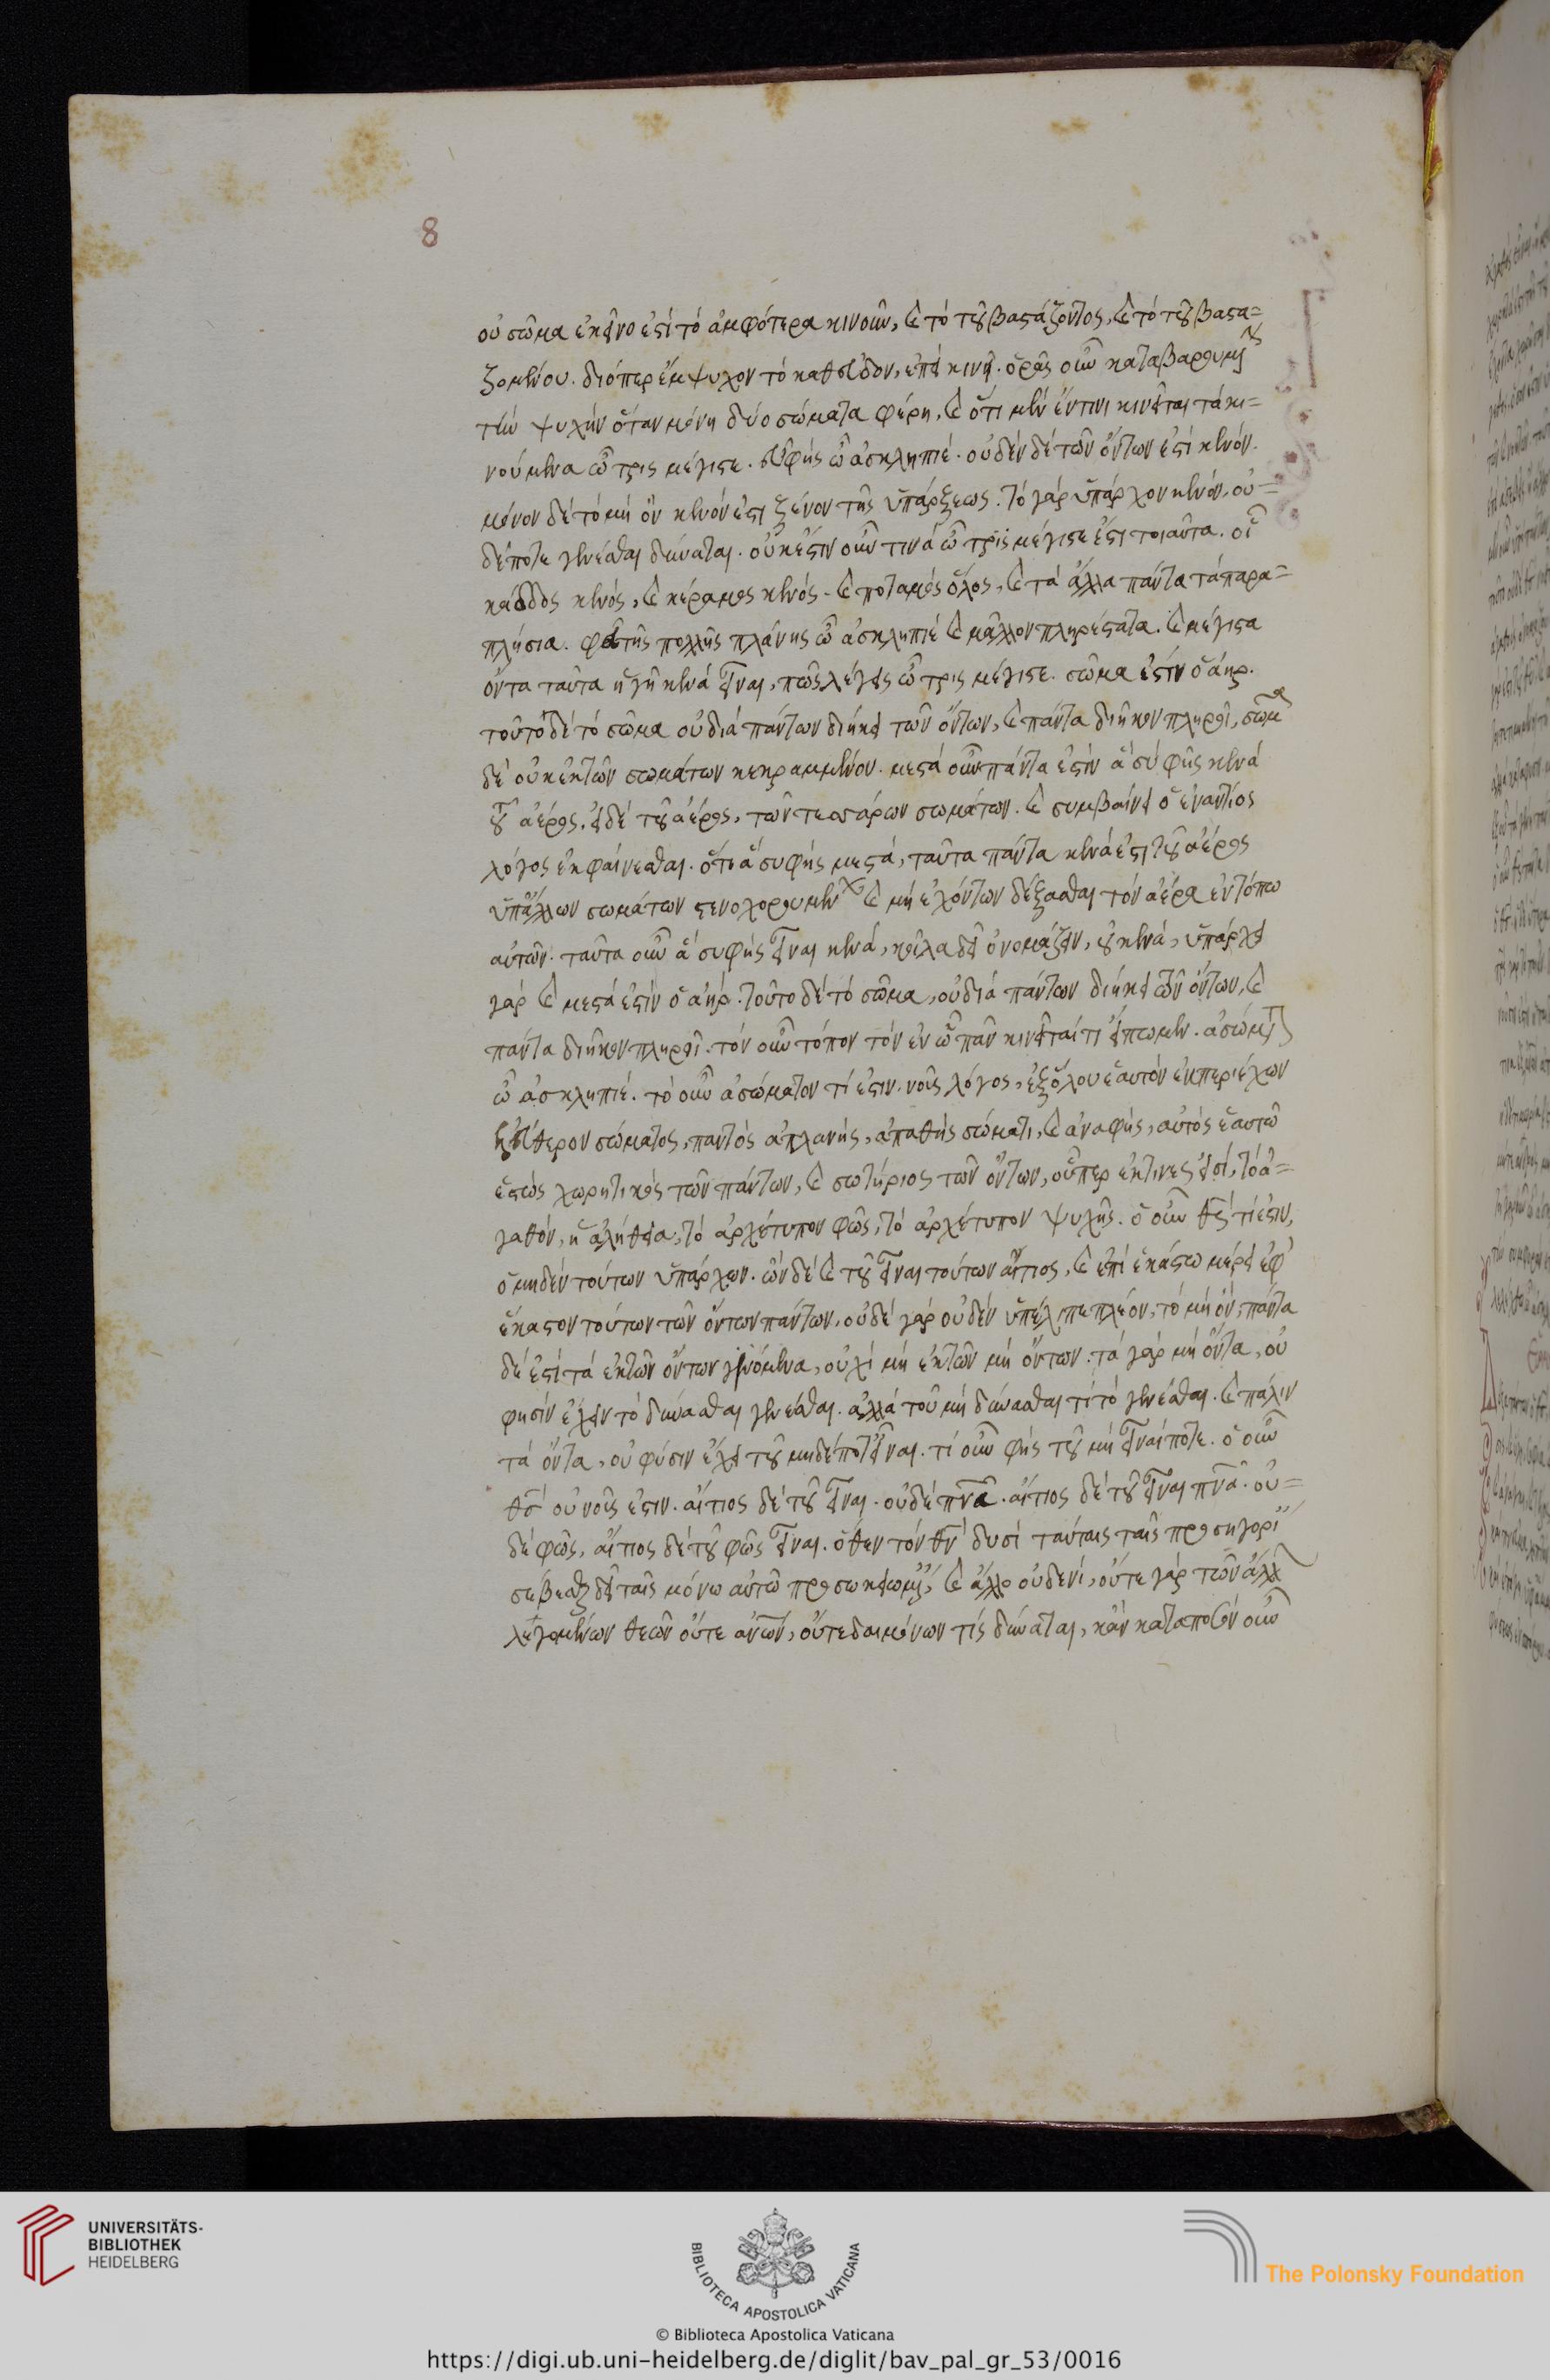 8
οὐ σῶμα ἐκεῖνο ἐστὶ τὸ ἀμφότερα κινοῦν, καὶ τὸ τοῦ βαστάζοντος, καὶ τὸ τοῦ βαστα=
ζομένου. διόπερ ἔμψυχον τὸ κινεῖ. ὁρᾶς οὖν καταβαρουμένην
τὴν ψυχὴν ὅταν μόνη δύο σώματα φέρη, καὶ ὅτι μὲν ἔν τινι κινεῖται τὰ κι=
νούμενα ὦ τρισμέγιστε. ὦ ἀσκληπιέ. οὐδὲν δὲ τῶν ὄντων ἐστὶ κενόν.
μόνον δὲ τὸ μὴ ὂν κενόν ἐστι ξένον τῆς ὑπάρξεως. τὸ γὰρ ὑπάρχον κενὸν, οὐ=
δέποτε γενέσθαι δύναται. οὐκ ἔστιν οὖν τινὰ ὦ τρισμέγιστε ἐστι τοιαῦτα. οἷ
κάδδος κενὸς, καὶ κέραμος κενὸς. καὶ ποταμὸς ὅλος, καὶ τὰ ἄλλα πάντα τὰ παρα=
πλήσια. φεῦ τῆς πολλῆς πλάνης ὦ ἀσκληπιὲ καὶ μᾶλλον πληρέστατα. καὶ μέγιστα
ὄντα ταῦτα ἡγῆ κενὰ εἶναι, πῶς λέγεις ὦ τρισμέγιστε. σῶμα ἐστὶν ὁ ἀὴρ.
τοῦτο δὲ τὸ σῶμα οὐ διὰ πάντων διήκει τῶν ὄντων, καὶ πάντα διῆκον πληροῖ, σῶμα
δὲ οὐκ ἐκ τῶν σωμάτων κεκραμμένον. μεστὰ οὖν πάντα ἐστὶν ἃ σὺ φῂς κενὰ
τοῦ ἀέρος, εἰ δὲ τοῦ ἀέρος, τῶν τεσσάρων σωμάτων. καὶ συμβαίνει ὁ ἐναντίος
λόγος ἐκφαίνεσθαι. ὅτι ἃ σὺ φῂς μεστὰ, ταῦτα πάντα κενὰ ἐστι τοῦ ἀέρος
ὑπ' ἄλλων σωμάτων στενοχορουμένων καὶ μὴ ἐχόντων δέξασθαι τὸν ἀέρα ἐν τόπω
αὐτῶν. ταῦτα οὖν ἃ σὺ φῂς εἶναι κενὰ, κοῖλα δεῖ ὀνομάζειν, οὐ κενὰ, ὑπάρχει
γὰρ καὶ μεστὰ ἐστὶν ὁ ἀὴρ. τοῦτο δὲ τὸ σῶμα, οὐ διὰ πάντων διήκει τῶν ὄντων, καὶ
πάντα διῆκον πληροῖ. τὸν οὖν τόπον τὸν ἐν ὧ πᾶν κινεῖται τί εἴπωμεν. ἀσώματον
ὦ ἀσκληπιέ. τὸ οὖν ἀσώματον τί ἐστιν. νοῦς λόγος, ἐξ ὅλου ἑαυτὸν ἐμπεριέχων
ἐλεύθερον σώματος, παντὸς ἀπλανὴς, ἀπαθὴς σώματι, καὶ ἀναφὴς, αὐτὸς ἑαυτῶ
ἑστὼς χωρητικὸς τῶν πάντων, καὶ σωτήριος τῶν ὄντων, οὗπερ ἀκτῖνες εἰσὶ, τὸ ἀ=
γαθὸν, ἡ ἀλήθεια, τὸ ἀρχέτυπον φῶς, τὸ ἀρχέτυπον ψυχῆς. ὁ οὖν θεὸς τί ἐστιν,
ὁ μηδὲν τούτων ὑπάρχων. ὢν δὲ καὶ τοῦ εἶναι τούτων αἴτιος, καὶ ἐπὶ ἑκάστω μέρει ἐφ'
ἕκαστον τούτων τῶν ὄντων πάντων, οὐδὲ γὰρ οὐδὲν ὑπέλιπε πλέον, τὸ μὴ ὂν, πάντα
δέ ἐστὶ τὰ ἐκ τῶν ὄντων γινόμενα, οὐχὶ μὴ ἐκ τῶν μὴ ὄντων. τὰ γὰρ μὴ ὄντα, οὐ
φησὶν ἔχειν τὸ δύνασθαι γενέσθαι. ἀλλὰ τοῦ μὴ δύνασθαι τί τὸ γενέσθαι. καὶ πάλιν
τὰ ὄντα, οὐ φύσιν ἔχει τοῦ μηδέποτ' εἶναι. τί οὖν φῂς τοῦ μὴ εἶναί ποτε. ὁ οὖν
θεὸς οὐ νοῦς ἐστιν. αἴτιος δὲ τοῦ εἶναι. οὐδὲ πνα. αἴτιος δὲ τοῦ εἶναι πνα. οὐ=
δὲ φῶς, αἴτιος δὲ τοῦ φῶς εἶναι. ὅθεν τὸν θν δυσὶ ταύταις ταῖς προσηγορί
σέβεσθαι δεῖ ταῖς μόνω αὐτῶ προσωκειωμέναις, καὶ ἄλλο οὐδενὶ, οὔτε γὰρ τῶν ἄλλων
λεγομένων θεῶν οὔτε ἀνων, οὔτε δαιμόνων τίς δύναται, κἂν κατὰ ποσὸν οὖν
UNIVERSITÄTS-
BIBLIOTHEK
HEIDELBERG
BIBLIOTECA APOSTOLICA VATICANA
The Polonsky Foundation
© Biblioteca Apostolica Vaticana
https://digi.ub.uni-heidelberg.de/diglit/bav_pal_gr_53/0016